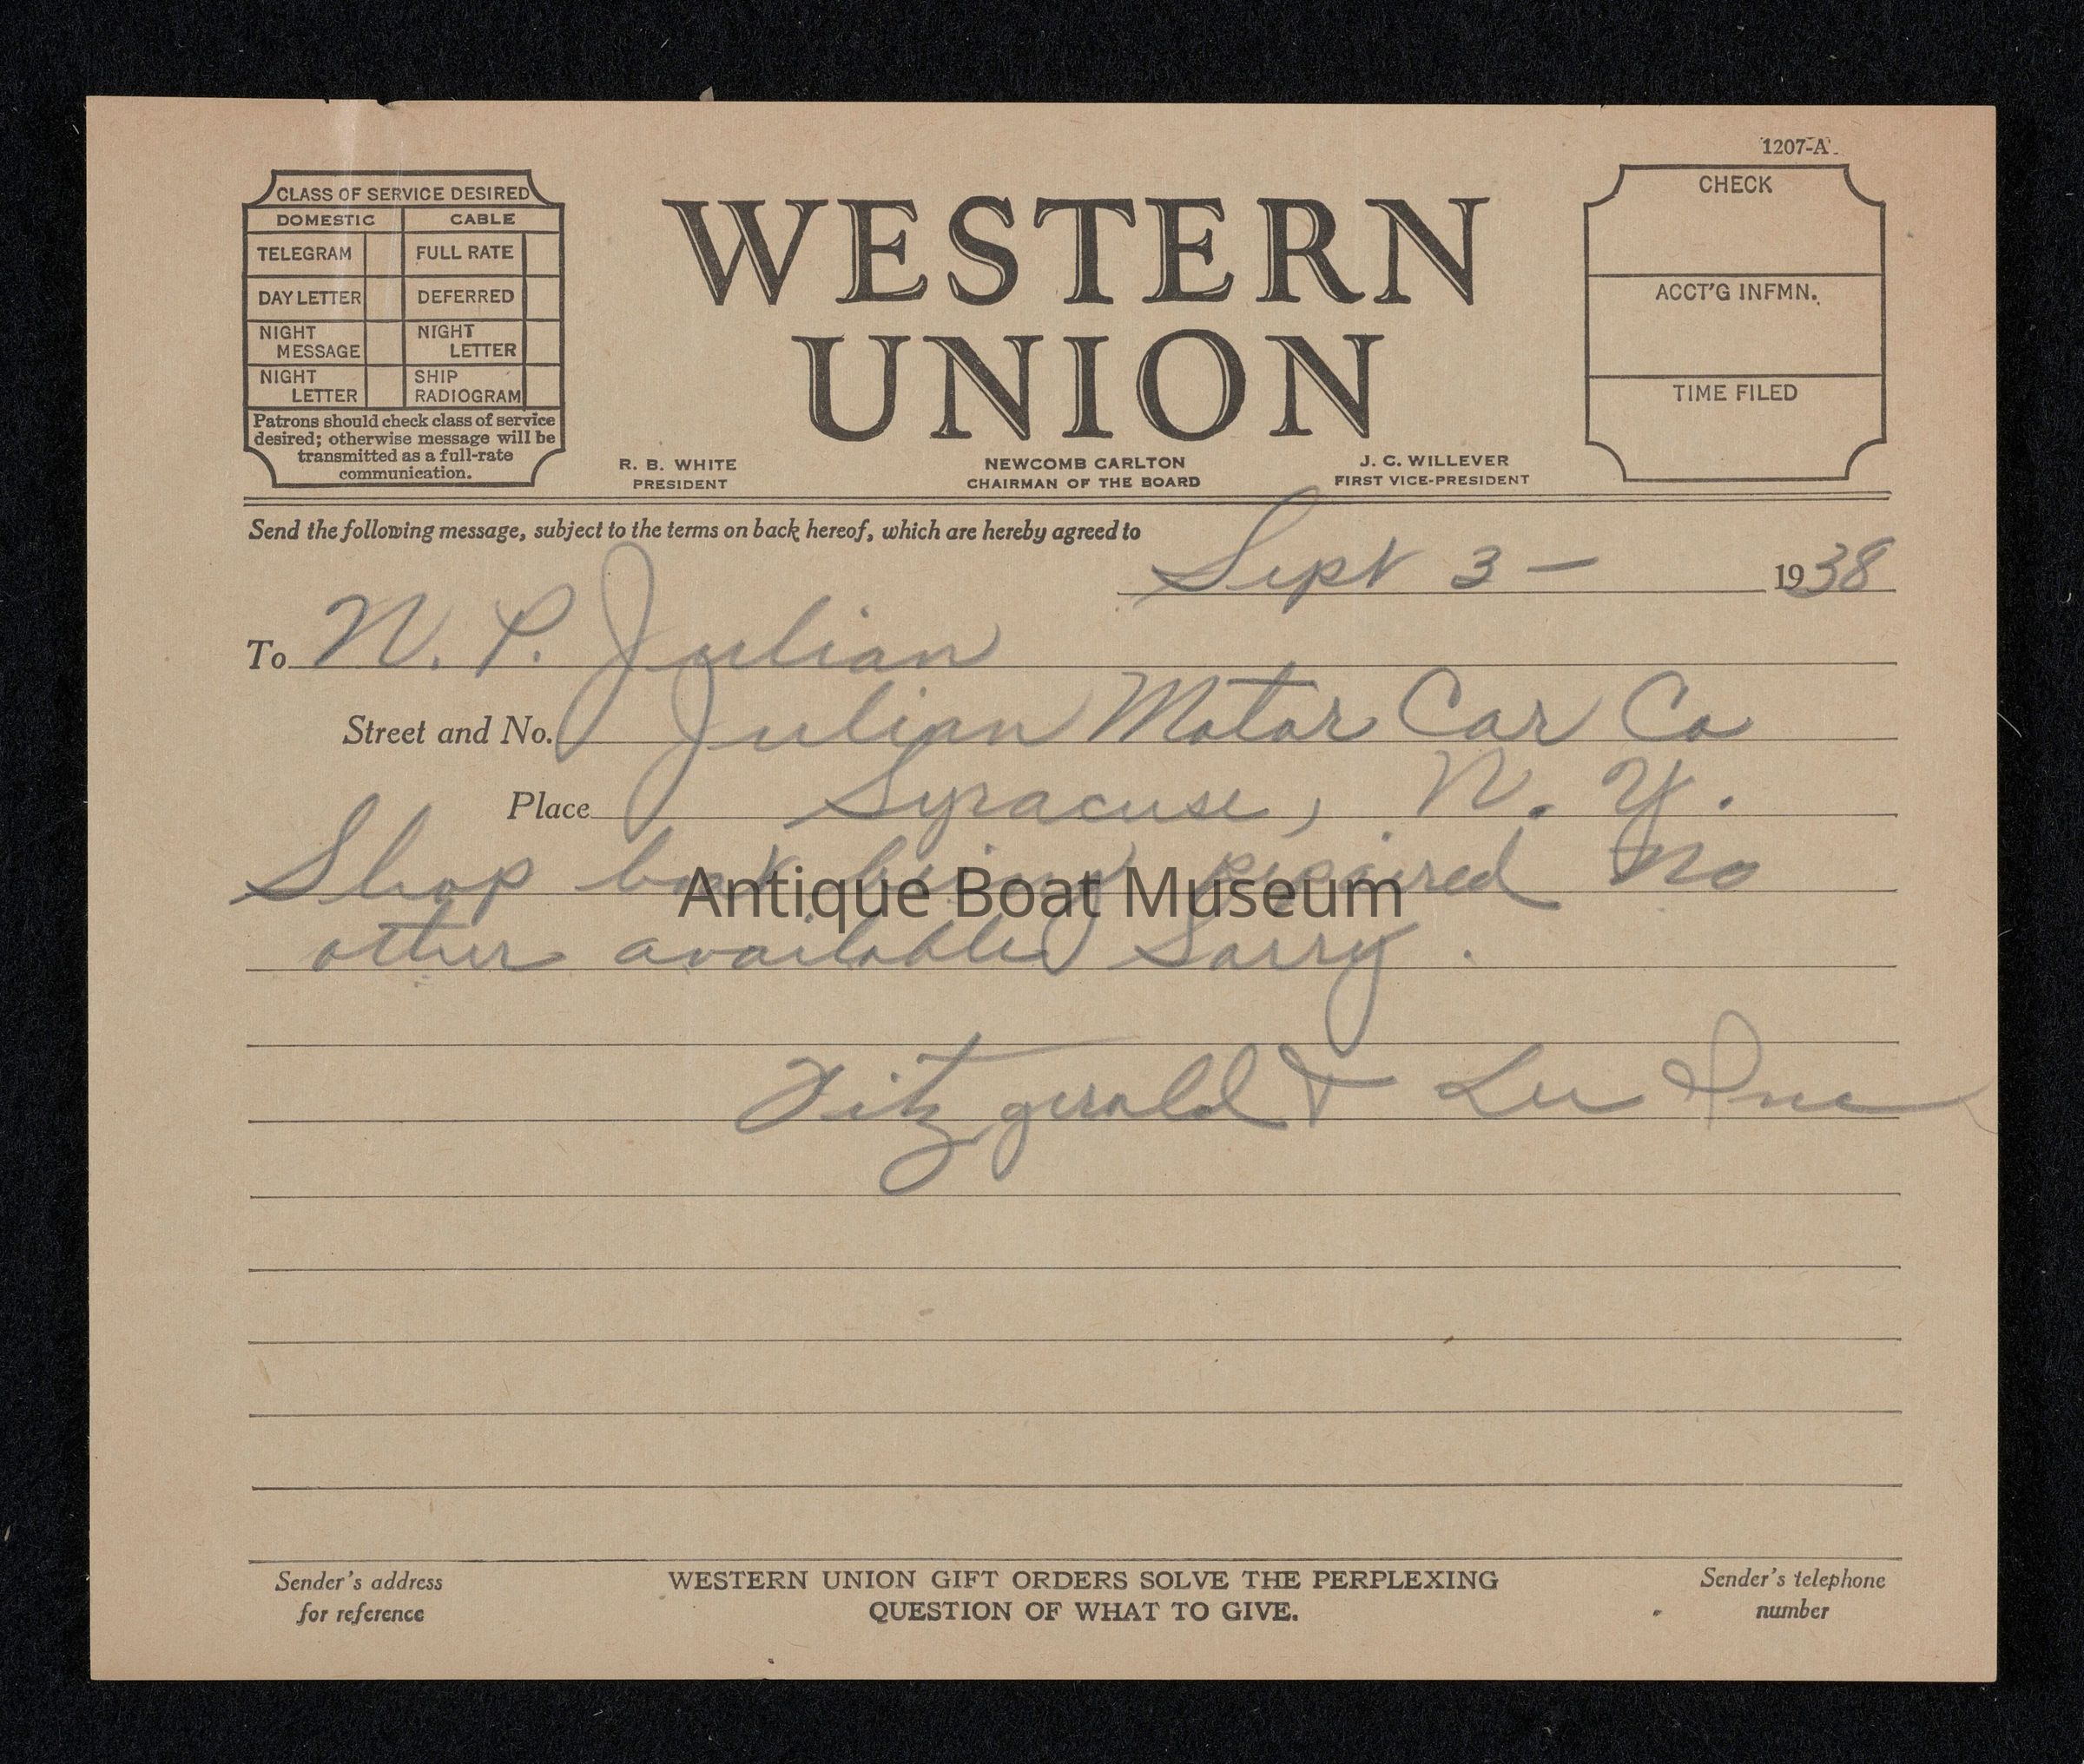 1207-A
CLASS OF SERVICE DESIRED
DOMESTIC CABLE
TELEGRAM FULL RATE
DAY LETTER DEFERRED
NIGHT MESSAGE NIGHT LETTER
NIGHT LETTER SHIP RADIOGRAM
Patrons should check class of service
desired; otherwise message will be
transmitted as a full-rate
communication.
WESTERN
UNION
R. B. WHITE
PRESIDENT
NEWCOMB CARLTON
CHAIRMAN OF THE BOARD
J. C. WILLEVER
FIRST VICE-PRESIDENT
CHECK
ACCT'G INFMN.
TIME FILED
Send the following message, subject to the terms on back hereof, which are hereby agreed to
Sept 3 — 1938
To N. P. Julian
Street and No. Julian Motor Car Co
Place Syracuse, N. Y.
Shop being repaired No
Antique Boat Museum
other available Sorry.
Fitzgerald & Lee Inc
Sender's address
for reference
WESTERN UNION GIFT ORDERS SOLVE THE PERPLEXING
QUESTION OF WHAT TO GIVE.
Sender's telephone
number